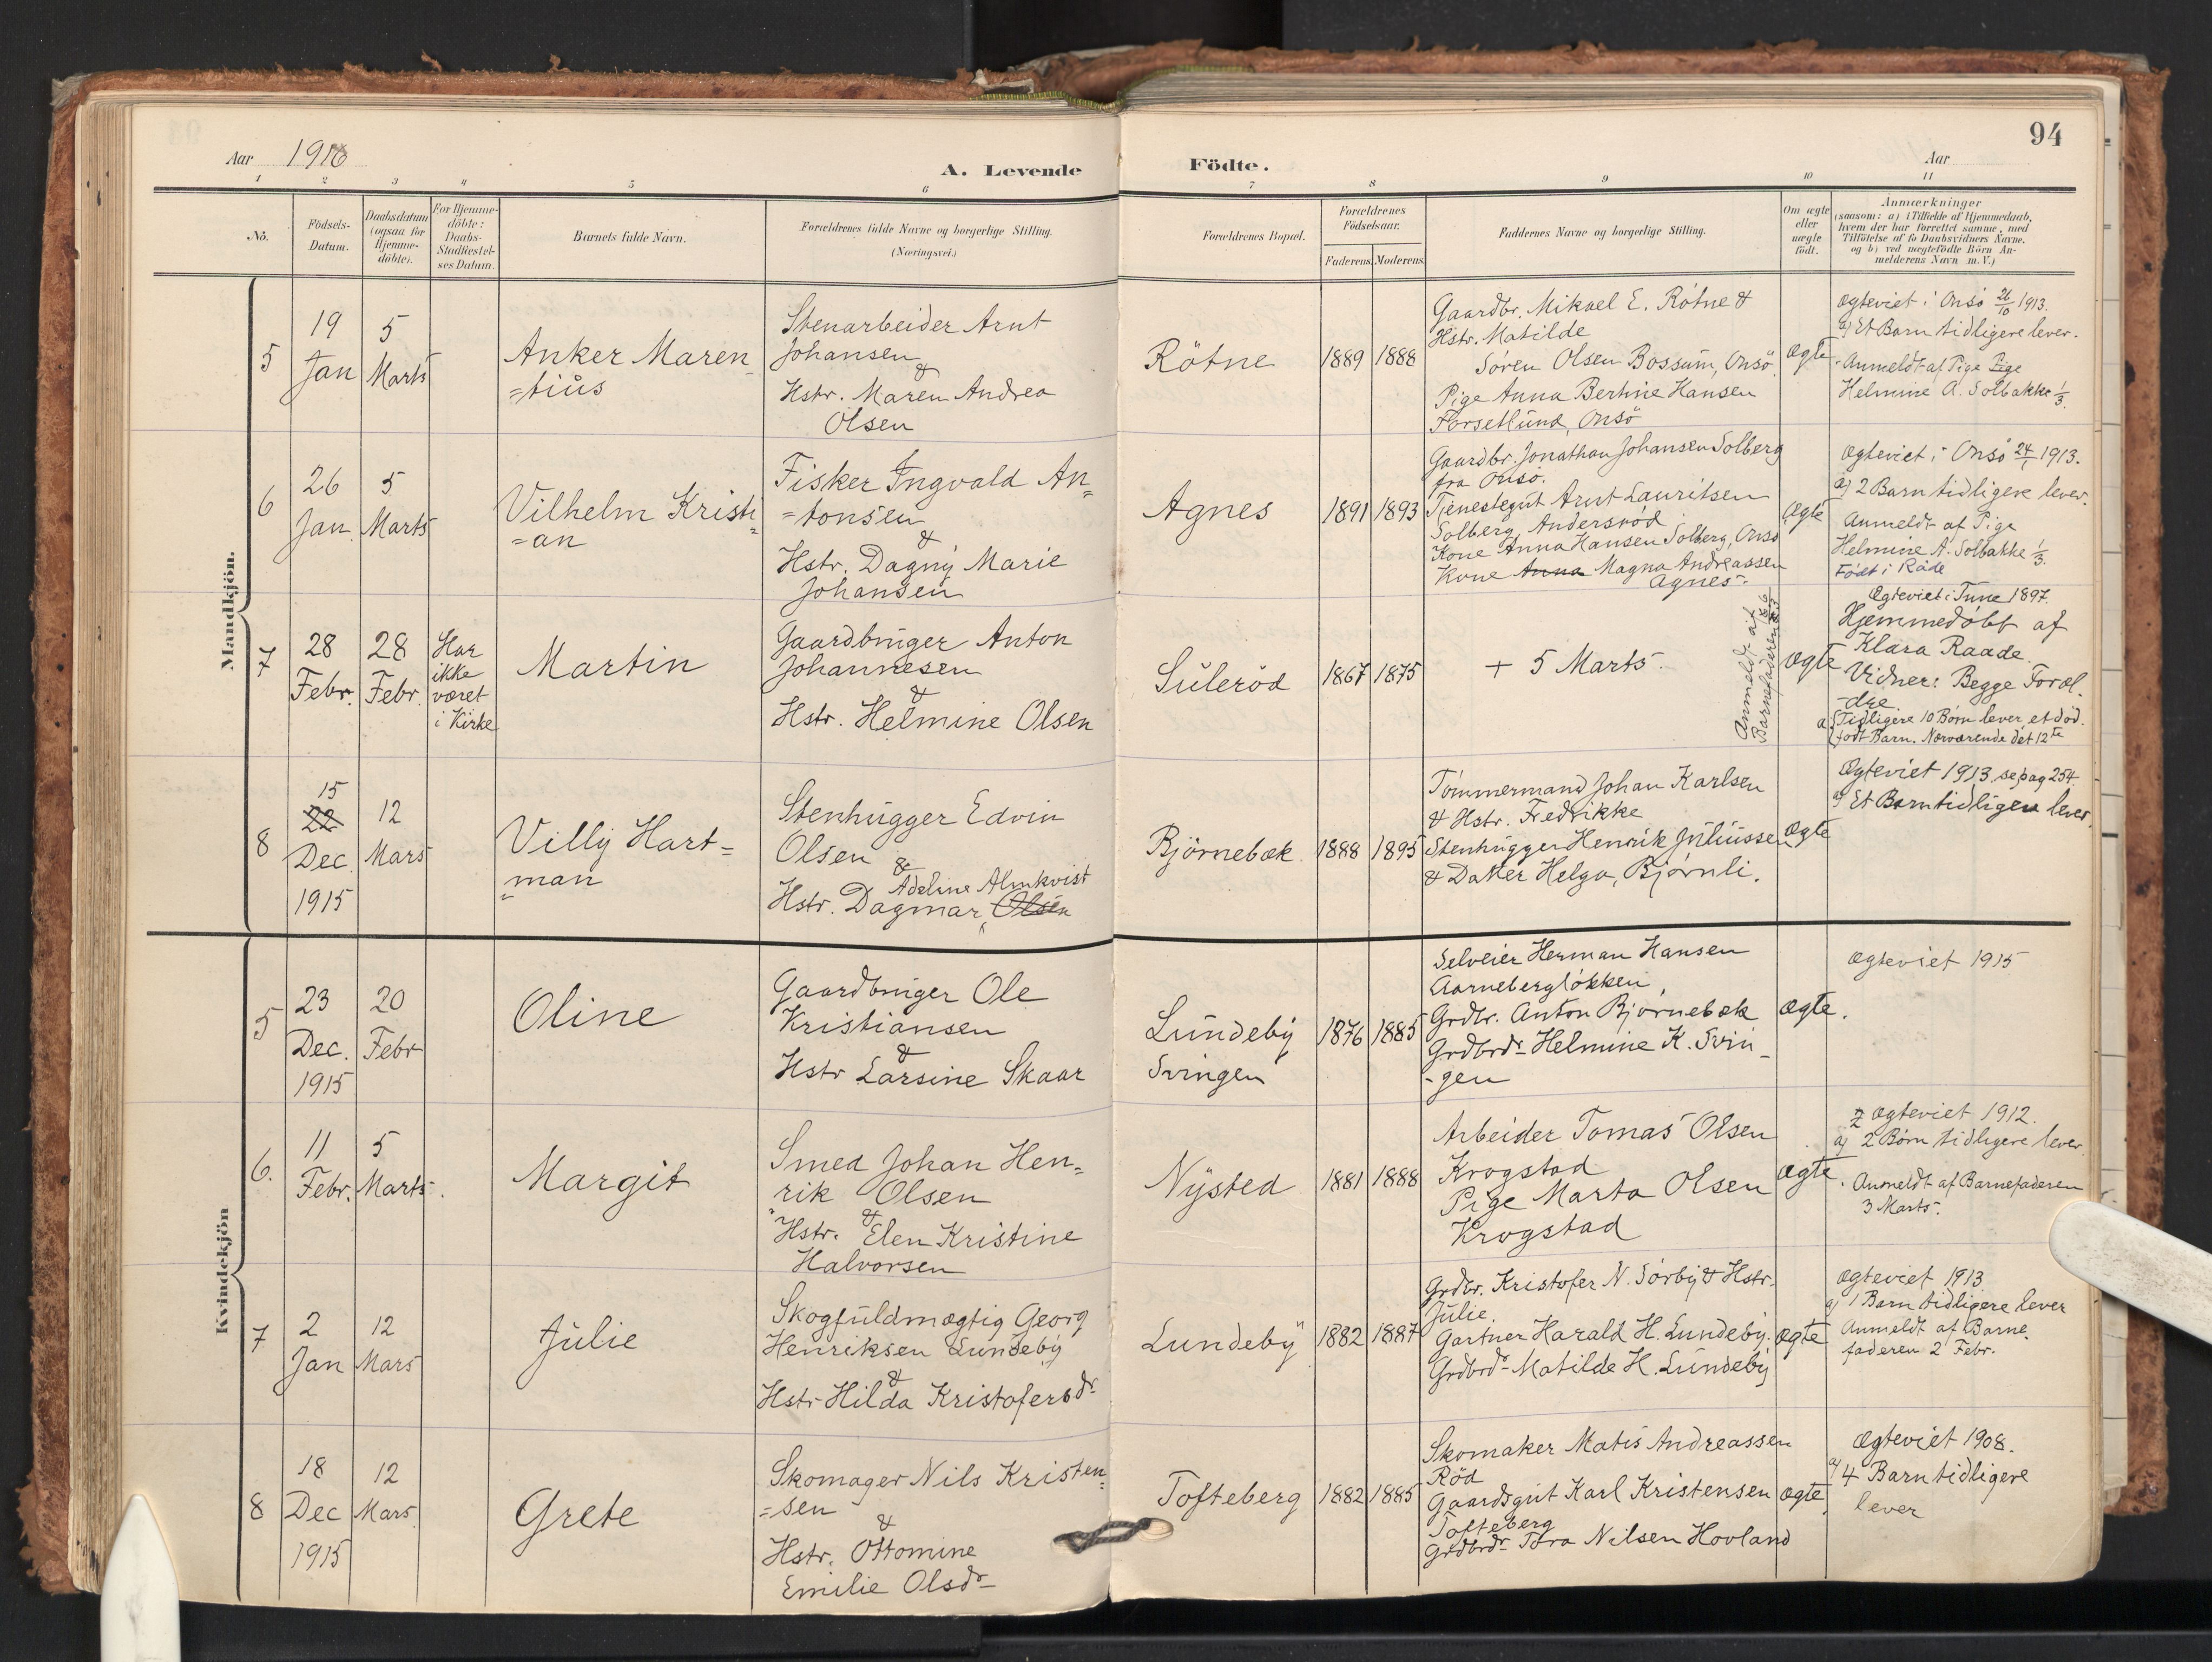 94
Aar 1916
A. Levende Födte.
Aar
1 2 3 4 5 6 7 8 9 10 11
No.
Födsels-
Datum.
Daabsdatum
(ogsaa for
Hjemme-
döbte).
For Hjemme-
döbte:
Daabs-
Stadfæstel-
ses Datum.
Barnets fulde Navn.
Forældrenes fulde Navne og borgerlige Stilling.
(Næringsvei.)
Forældrenes Bopæl.
Forældrenes
Födselsaar.
Faderens. Moderens.
Faddernes Navne og borgerlige Stilling.
Om ægte
eller
uægte
födt.
Anmærkninger
(saasom: a) i Tilfælde af Hjemmedaab,
hvem der har forrettet samme, med
Tilföielse af to Daabsvidners Navne,
og b) ved uægtefödte Börn An-
melderens Navn m. V.)
Mandkjön.
5
19
Jan
5
Marts
Anker Maren
=tius
Stenarbeider Arnt
Johansen
&
Hstr. Maren Andrea
Olsen
Rötne
1889
1888
Gaardbr. Mikael E. Rötne &
Hstr. Matilde
Sören Olsen Bossum, Onsö
Pige Anna Bertine Hansen
Forsetlund, Onsö
ægte
Ægteviet i Onsö 26/10 1913.
a) Et Barn tidligere lever.
Anmeldt af Pige Pige
Helmine A. Solbakke 1/3.
6
26
Jan.
5
Marts
Vilhelm Kristi
=an
Fisker Ingvald An=
=tonsen
&
Hstr. Dagny Marie
Johansen
Agnes
1891
1893
Gaardbr. Jonathan Johansen Solberg
fra Onsö.
Tjenestegut Arnt Lauritsen
Solberg, Andersröd
Kone Anna Hansen Solberg, Onsö
Kone Anna Magna Andreassen
Agnes.
Ægte
Ægteviet i Onsö 24/1 1913.
a) 2 Barn tidligere lever.
Anmeldt af Pige
Helmine A. Solbakke 1/3.
Födt i Råde
7
28
Febr.
28
Febr.
Har
ikke
været
i Kirke
Martin
Gaardbruger Anton
Johannesen
&
Hstr. Helmine Olsen
Suleröd
1867
1875
+ 5 Marts.
Anmeldt af
Barnefaderen
ægte
Ægteviet i Tune 1897.
Hjemmedöbt af
Klara Raade.
Vidner: Begge Foræl.
-dre
a) Tidligere 10 Börn lever, et död.
födt Barn. Nærværende det 12te
8
15
22
Dec
1915
12
Mars
Villy Hart=
=man
Stenhugger Edvin
Olsen
&
Adeline Almkvist
Hstr. Dagmar Olsen
Björnebæk
1888
1895
Tömmermand Johan Karlsen
& Hstr. Fredrikke
Stenhugger Henrik Juliussen
& Datter Helga, Björnli.
Ægte
Ægteviet 1913. se pag 254.
a) Et Barn tidligere lever.
Kvindekjön
5
23
Dec.
1915
20
Febr
Oline
Gaardbruger Ole
Kristiansen
&
Hstr Larsine Skaar
Lundeby
Svingen
1876
1885
Selveier Herman Hansen
Aarneberglökken,
Grdbr. Anton Björnebæk
Grdbrdr. Helmine K. Svin-
-gen
ægte.
Ægteviet 1915
6.
11
Febr.
5
Marts.
Margit
Smed Johan Hen=
rik Olsen
&
Hstr. Elen Kristine
Halvorsen
Nysted
1881
1888
Arbeider Tomas Olsen
Krogstad
Pige Marta Olsen
Krogstad
ægte.
Ægteviet 1912.
a) 2 Börn tidligere lever.
Anmeldt af Barnefaderen
3 Marts.
7
2
Jan
12
Mars
Julie
Skogfuldmægtig Georg
Henriksen Lundeby
&
Hstr Hilda Kristofersdr
Lundeby
1882
1887
Grdbr. Kristofer N. Sörby & Hstr.
Julie.
Gartner Harald H. Lundeby.
Grdbrdr Matilde H. Lundeby
ægte
Ægteviet 1913
a) 1 Barn tidligere lever
Anmeldt af Barne
faderen 2 Febr.
8
18
Dec
1915
12
Mars
Grete
Skomager Nils Kristen=
=sen
&
Hstr. Ottomine
Emilie Olsdr
Tofteberg
1882
1885
Skomaker Matis Andreassen
Röd
Gaardsgut Karl Kristensen
Tofteberg
Grdbrdr Tora Nilsen Hovland
ægte
Ægteviet 1908.
a) 4 Barn tidligere
lever